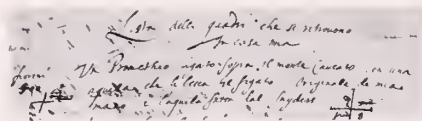 Lista delli quadri che si retrovano
In casa mia
Un Prometheo ligato sopra il monte Caucaso con una
aquila che li becca il figato Originale de mia
mano e l'aquila fatta dal Snyders